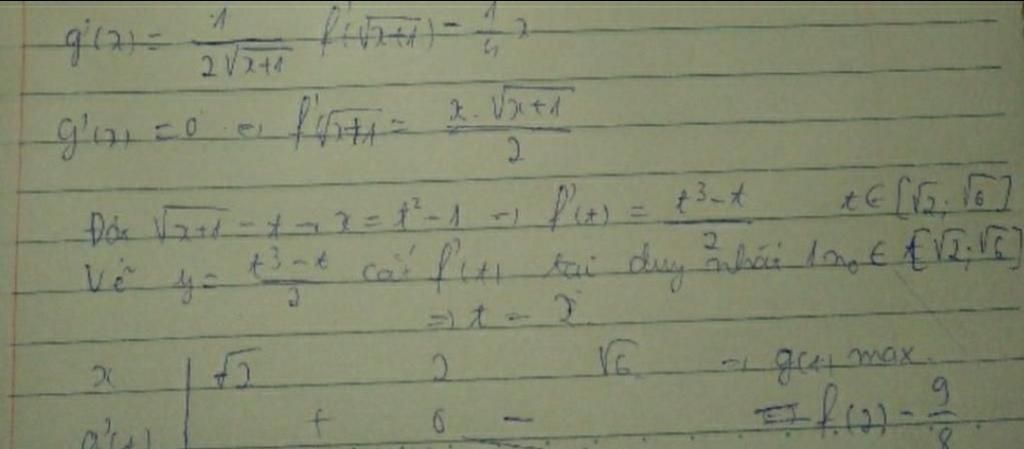 g'(x) = 1/(2√(x+1)) f'(√(x+1)) - 1/4 x
g'(x) = 0 ⇔ f'√(x+1) = (x.√(x+1))/2
Đặt √(x+1) = t → x = t² - 1 → f'(t) = (t³-t)/2 t ∈ [√2; √6]
Vẽ y = (t³-t)/2 cắt f'(t) tại duy nhất 1 no ∈ t[√2; √6]
⇒ t = 2
x √2 2 √6 → g(t) max
g'(t) + 0 - ⇔ f(2) - 9/8